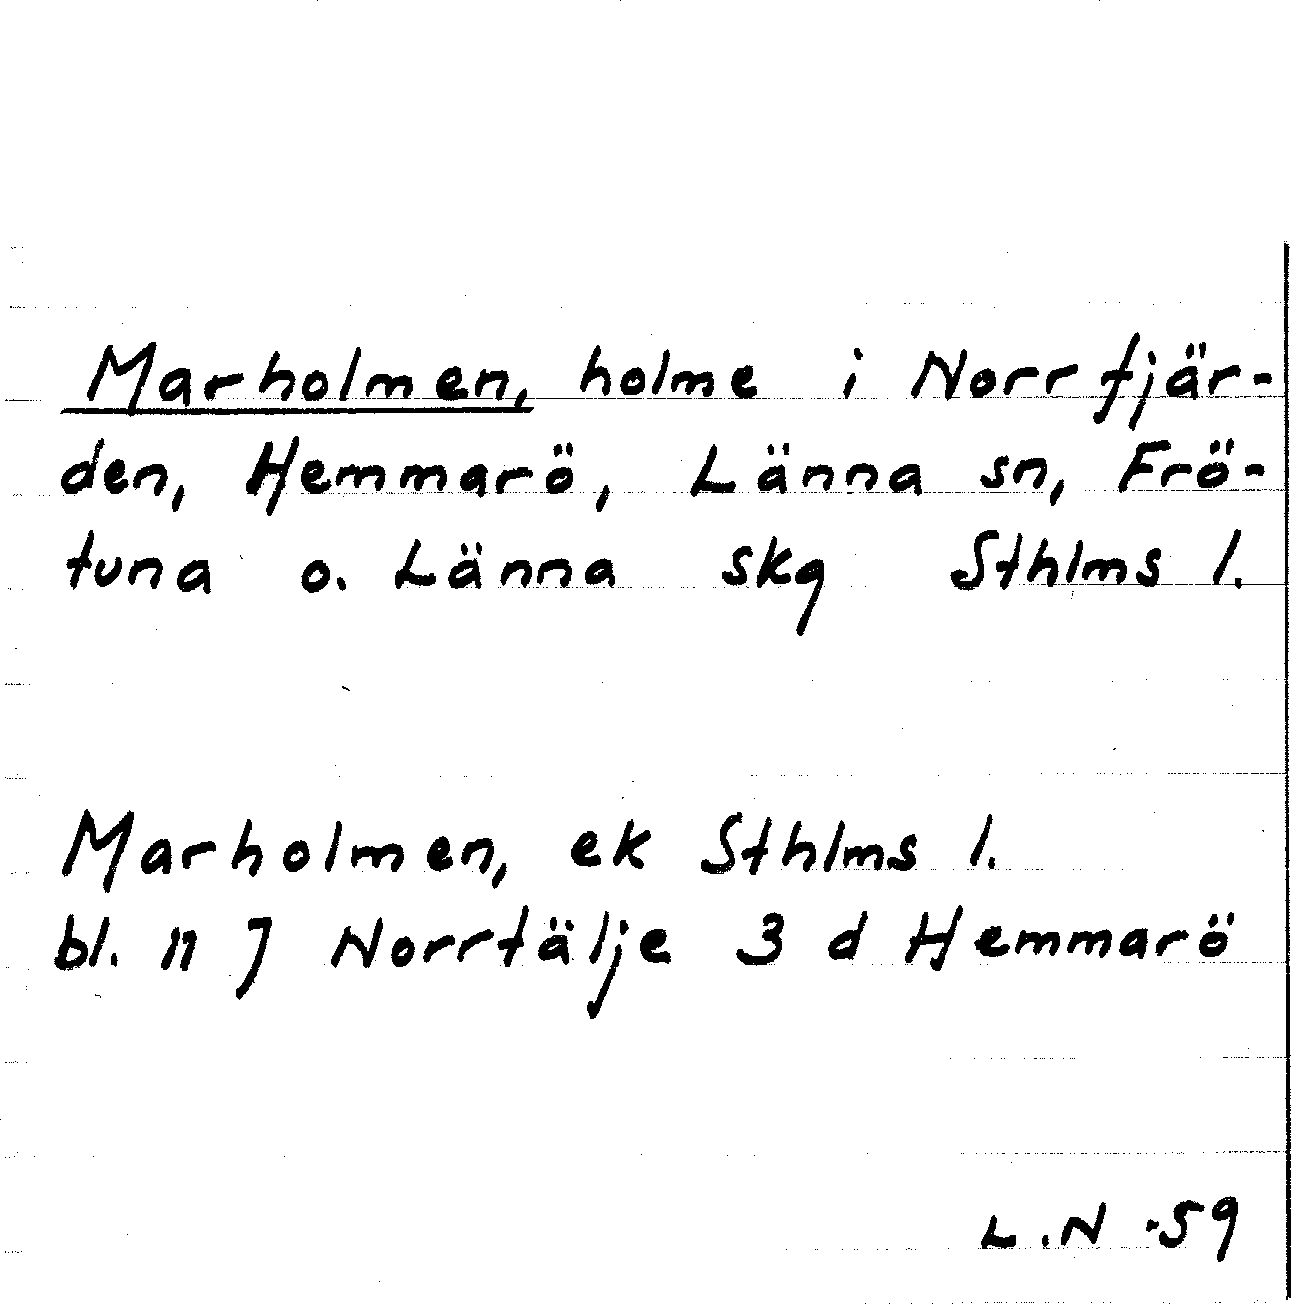 Marholmen, holme i Norrfjär-
den, Hemmarö, Länna sn, Frö-
tuna o. Länna skg Sthlms l.
Marholmen, ek Sthlms l.
bl. 11 J Norrtälje 3 d Hemmarö
L.N -59